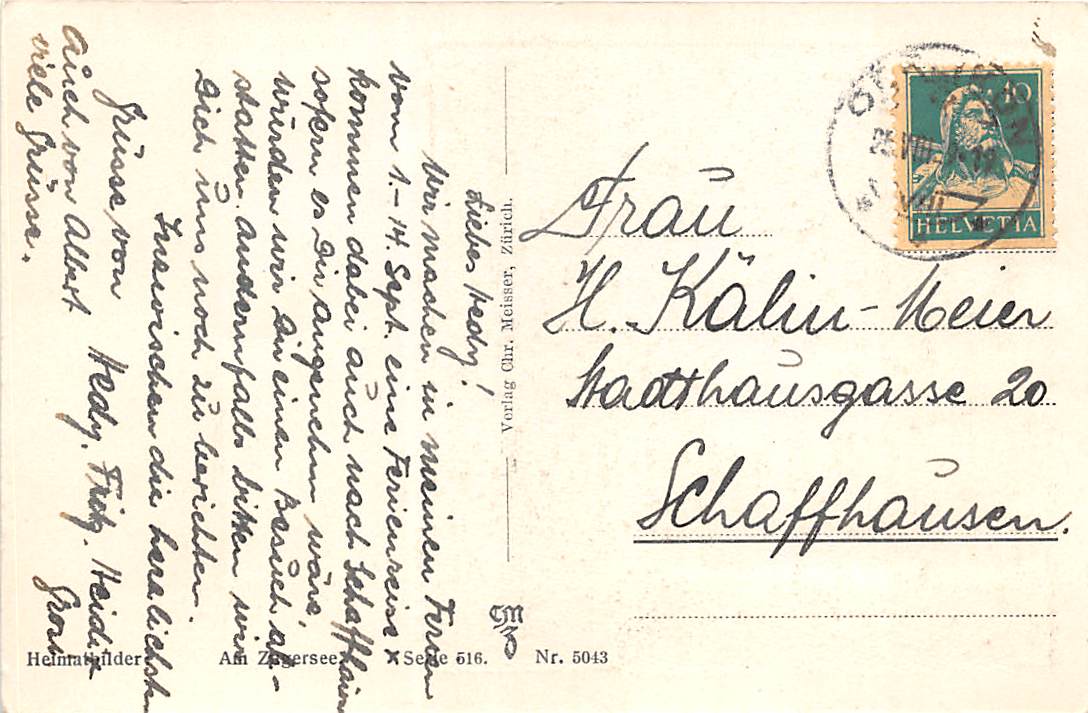 Liebes Hedy!
Wir machen in meinen Ferien
vom 1.-14. Sept. eine Ferienreise x
kommen dabei auch nach Schaffhausen
sofern es Dir angenehm wäre,
würden wir Dir einen Besuch ab-
statten. Andernfalls bitten wir
Dich uns noch zu berichten.
Inzwischen die herzlichsten
Grüsse von Hedy, Fritz, Heidi x
Auch von Albert
viele Grüsse.
Verlag Chr. Meisser, Zürich.
Frau
H. Kälin-Meier
Stadthausgasse 20
Schaffhausen.
10
HELVETIA
25.VIII.
CM
Heimatbilder Am Zugersee Serie 516. Nr. 5043